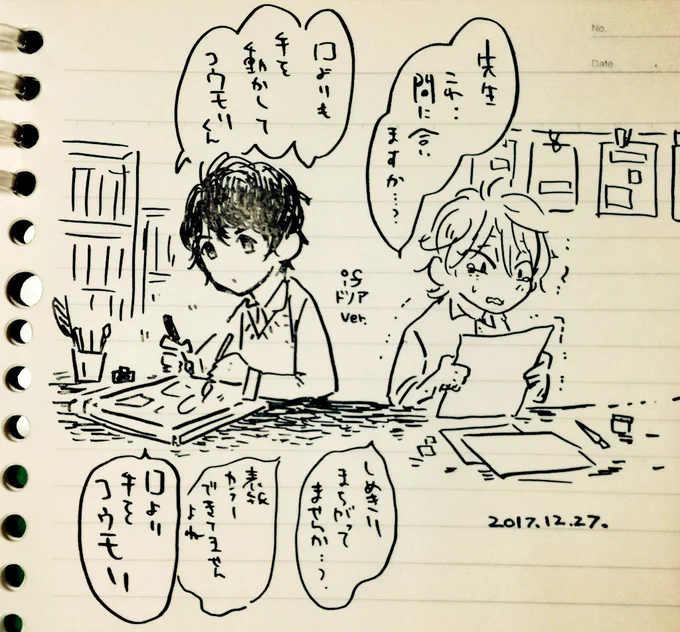 No.
Date
先生
これ…
間に合い
ますか…?
口よりも
手を
動かして
コウモリくん
if
ドノア
ver.
しめきり
まちがって
ませんか…?
表紙
カラー
できてません
よね
口より
手を
コウモリ
2017.12.27.